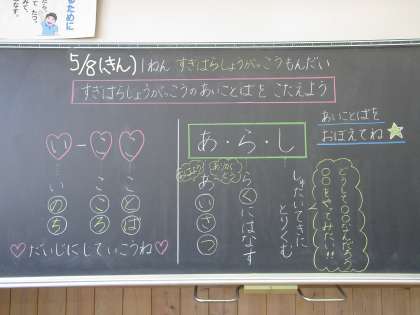 5/8(きん) 1ねん すぎはらしょうがっこうもんだい
すぎはらしょうがっこうのあいことばをこたえよう
あいことばを
おぼえてね
い-こ こ
ことば
こころ
いのち
だいじにしていこうね
あ・ら・し
どうして〇〇なんだろう?
〇〇をやってみたい!!
しゅたいてきに
とりくむ
らくにはなす
ありがとう
おはよう
あいさつ